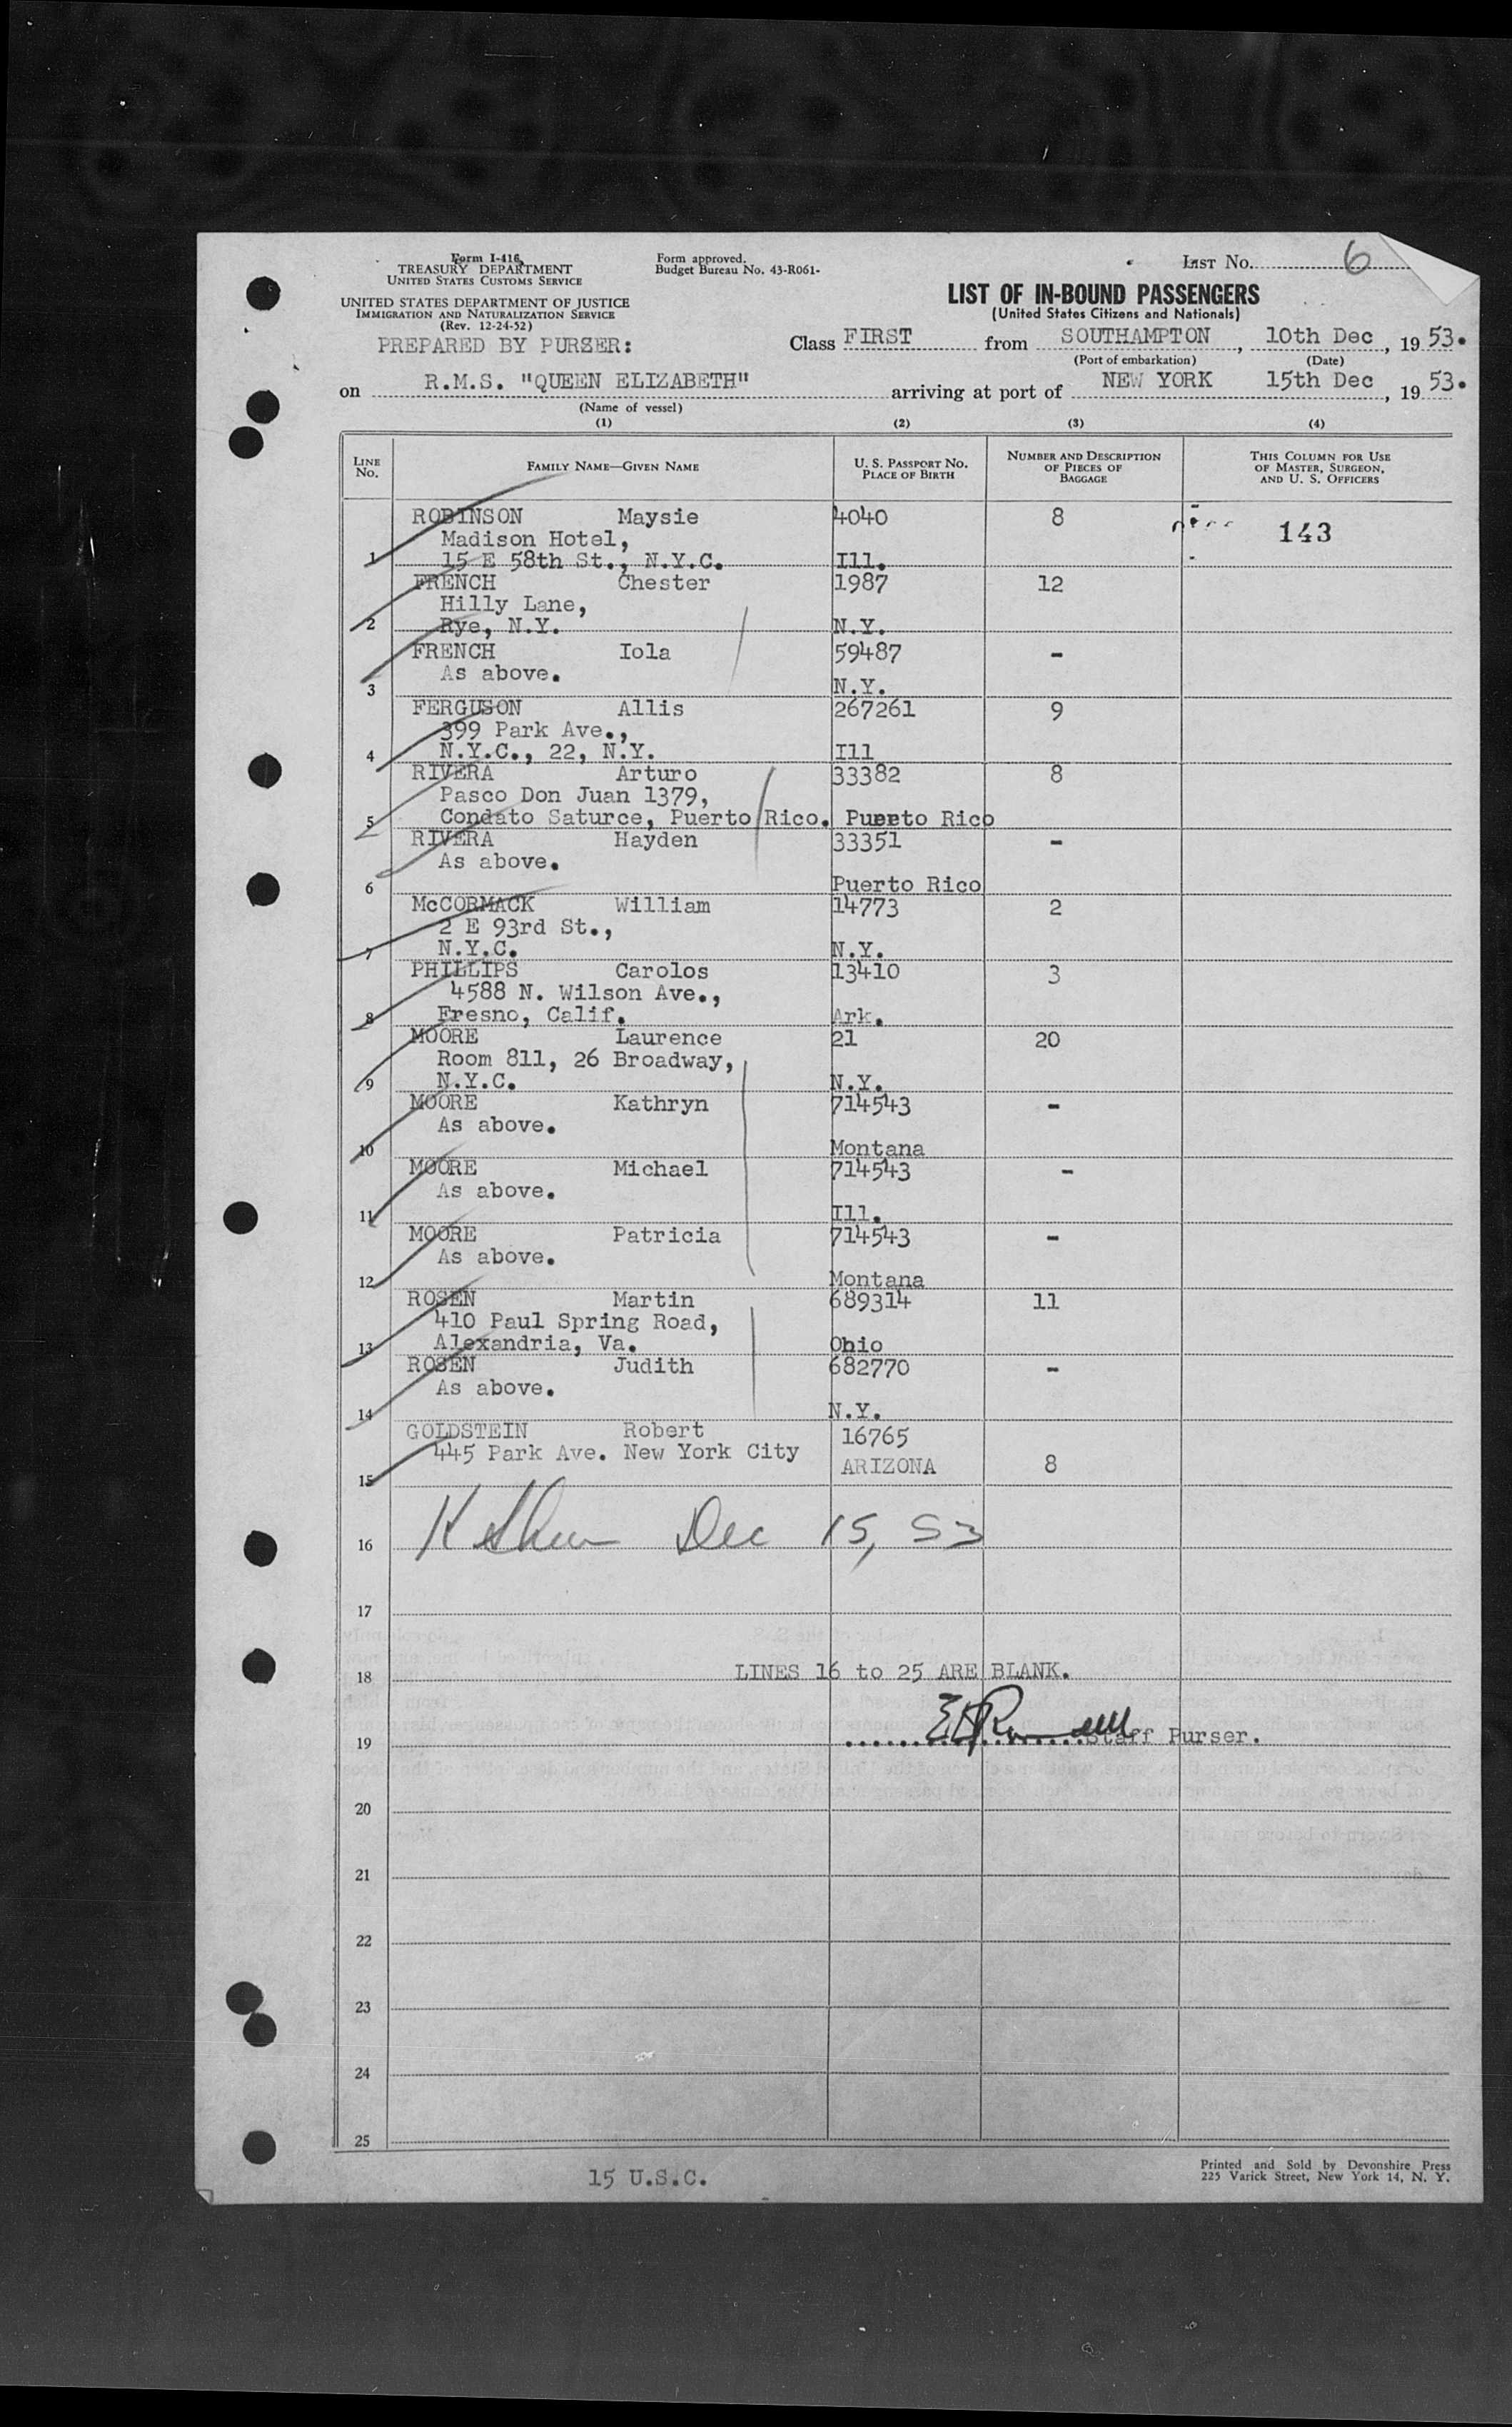 Form I-416
TREASURY DEPARTMENT
UNITED STATES CUSTOMS SERVICE
UNITED STATES DEPARTMENT OF JUSTICE
IMMIGRATION AND NATURALIZATION SERVICE
(Rev. 12-24-52)
PREPARED BY PURSER:
Form approved.
Budget Bureau No. 43-R061-
LIST No. 6
LIST OF IN-BOUND PASSENGERS
(United States Citizens and Nationals)
Class FIRST from SOUTHAMPTON, 10th Dec, 1953.
(Port of embarkation) (Date)
on R.M.S. "QUEEN ELIZABETH" arriving at port of NEW YORK 15th Dec, 1953.
(Name of vessel)
(1) (2) (3) (4)
LINE No. FAMILY NAME—GIVEN NAME U. S. PASSPORT No. PLACE OF BIRTH NUMBER AND DESCRIPTION OF PIECES OF BAGGAGE THIS COLUMN FOR USE OF MASTER, SURGEON, AND U. S. OFFICERS
ROBINSON Maysie 4040 8 143
Madison Hotel,
1 15 E 58th St., N.Y.C. Ill.
FRENCH Chester 1987 12
Hilly Lane,
2 Rye, N.Y. N.Y.
FRENCH Iola 59487 -
As above.
3 N.Y.
FERGUSON Allis 267261 9
399 Park Ave.,
4 N.Y.C., 22, N.Y. Ill
RIVERA Arturo 33382 8
Pasco Don Juan 1379,
5 Condato Saturce, Puerto Rico. Puerto Rico
RIVERA Hayden 33351 -
As above.
6 Puerto Rico
McCORMACK William 14773 2
2 E 93rd St.,
7 N.Y.C. N.Y.
PHILLIPS Carolos 13410 3
4588 N. Wilson Ave.,
8 Fresno, Calif. Ark.
MOORE Laurence 21 20
Room 811, 26 Broadway,
9 N.Y.C. N.Y.
MOORE Kathryn 714543 -
As above.
10 Montana
MOORE Michael 714543 -
As above.
11 Ill.
MOORE Patricia 714543 -
As above.
12 Montana
ROSEN Martin 689314 11
410 Paul Spring Road,
13 Alexandria, Va. Ohio
ROSEN Judith 682770 -
As above.
14 N.Y.
GOLDSTEIN Robert 16765
445 Park Ave. New York City
15 ARIZONA 8
16 Dec 15, 53
17
18 LINES 16 to 25 ARE BLANK.
19 Staff Purser.
20
21
22
23
24
25
15 U.S.C.
Printed and Sold by Devonshire Press
225 Varick Street, New York 14, N. Y.